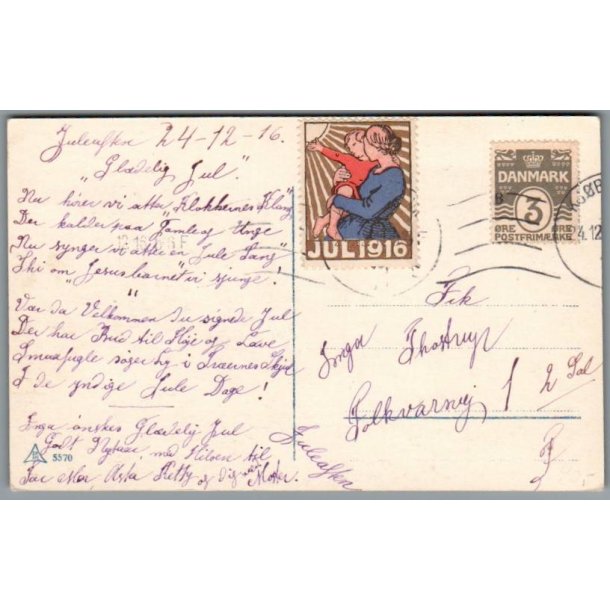 Juleaften 24-12-16.
"Glædelig Jul".
Nu hører vi atter "Klokkernes Klang"
Der kalder paa "Gamle og Unge
Nu synger vi atter en "Jule Sang"
Thi om "Jesusbarnet vi sjunge!
Vær da Velkommen du signede Jul
Der har Bud til Høje og Lave
Smaafugle søger Ly i Træernes Skjul
I de yndige Jule Dage!
Inga ønskes Glædelig Jul
Godt Nytaar, med Hilsen til
Far Mor, Asta Ketty og Moster.
5570
Juleaften
JUL 1916
DANMARK
3
ØRE ØRE
POSTFRIMÆRKE
Frk
Inga Thostrup
Solkvarnvej 1 2 Sal